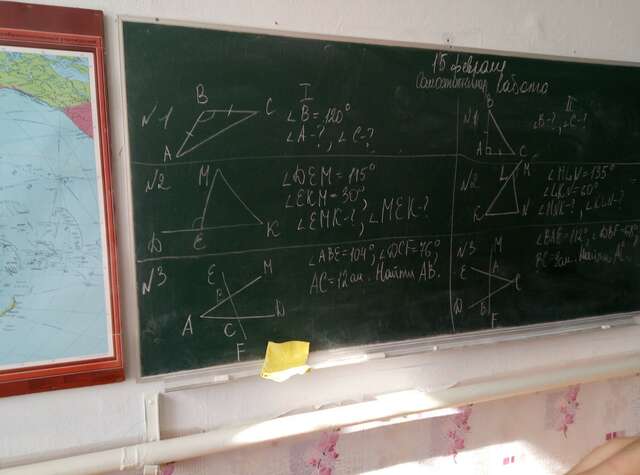 15 февраля
Самостоятельная работа
I
№1
B
C
A
∠B = 120°
∠A-?, ∠C-?
№2
M
D
E
K
∠DEM = 115°
∠EKM = 30°,
∠EMK-?, ∠MEK-?
№3
E
M
B
A
C
D
F
∠ABE = 104°, ∠DCF = 76°,
AC = 12см. Найти AB.
II
№1
B
A
C
∠B-?, ∠C-?
№2
M
L
K
N
∠MLN = 135°
№3
M
E
A
C
D
B
F
∠BAE = 112°,
Найти AC.